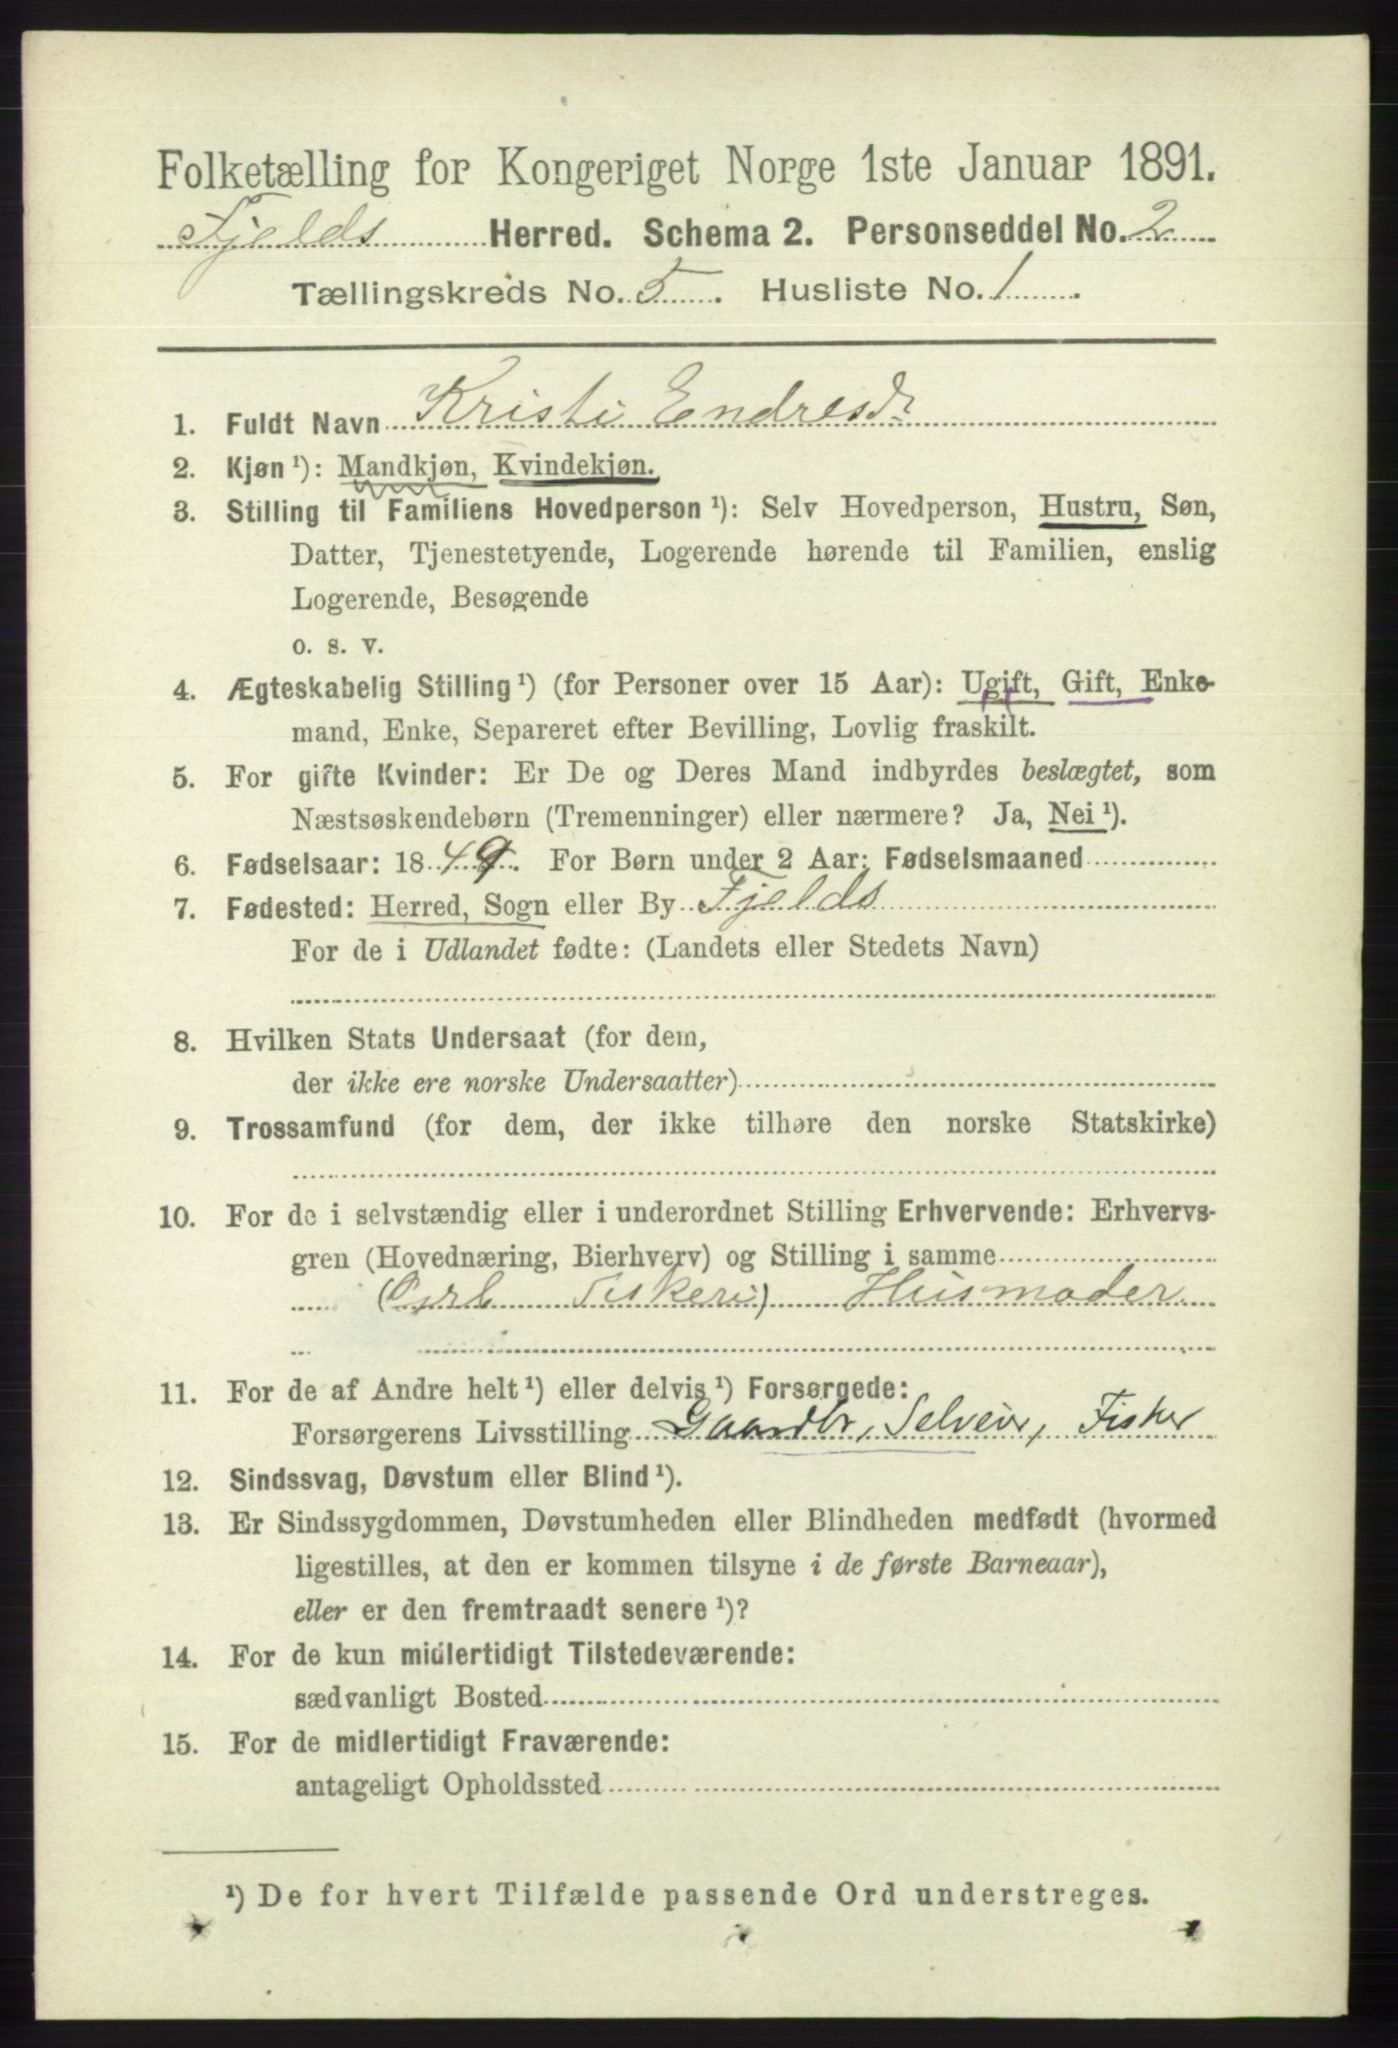 Folketælling for Kongeriget Norge 1ste Januar 1891.
Fjelds Herred. Schema 2. Personseddel No. 2
Tællingskreds No. 5. Husliste No. 1.
1. Fuldt Navn Kristi Endresdr
2. Kjøn ¹): Mandkjøn, Kvindekjøn.
3. Stilling til Familiens Hovedperson ¹): Selv Hovedperson, Hustru, Søn,
Datter, Tjenestetyende, Logerende hørende til Familien, enslig
Logerende, Besøgende
o. s. v.
4. Ægteskabelig Stilling ¹) (for Personer over 15 Aar): Ugift, Gift, Enke-
mand, Enke, Separeret efter Bevilling, Lovlig fraskilt.
5. For gifte Kvinder: Er De og Deres Mand indbyrdes beslægtet, som
Næstsøskendebørn (Tremenninger) eller nærmere? Ja, Nei ¹).
6. Fødselsaar: 1849. For Børn under 2 Aar: Fødselsmaaned
7. Fødested: Herred, Sogn eller By Fjelds
For de i Udlandet fødte: (Landets eller Stedets Navn)
8. Hvilken Stats Undersaat (for dem,
der ikke ere norske Undersaatter)
9. Trossamfund (for dem, der ikke tilhøre den norske Statskirke)
10. For de i selvstændig eller i underordnet Stilling Erhvervende: Erhvervs-
gren (Hovednæring, Bierhverv) og Stilling i samme
Fiskeri) Husmoder
11. For de af Andre helt ¹) eller delvis ¹) Forsørgede:
Forsørgerens Livsstilling Gaardbr, Selveier, Fisker
12. Sindssvag, Døvstum eller Blind ¹).
13. Er Sindssygdommen, Døvstumheden eller Blindheden medfødt (hvormed
ligestilles, at den er kommen tilsyne i de første Barneaar),
eller er den fremtraadt senere ¹)?
14. For de kun midlertidigt Tilstedeværende:
sædvanligt Bosted
15. For de midlertidigt Fraværende:
antageligt Opholdssted
¹) De for hvert Tilfælde passende Ord understreges.